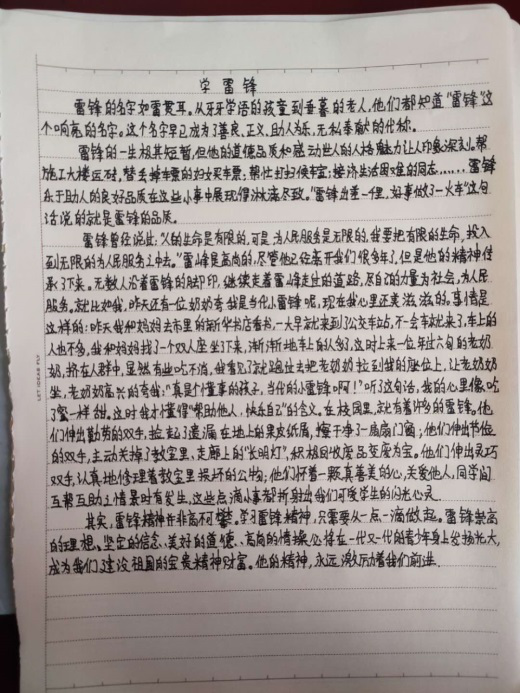 学雷锋
雷锋的名字如雷贯耳。从牙牙学语的孩童到垂暮的老人,他们都知道“雷锋”这
个响亮的名字。这个名字早已成为了善良、正义、助人为乐、无私奉献的代称。
雷锋的一生极其短暂,但他的道德品质和感动世人的人格魅力让人印象深刻。帮
施工大楼运砖;替丢掉车票的妇女买车票;帮忙打扫候车室;接济生活困难的同志……雷锋
乐于助人的良好品质在这些小事中展现得淋漓尽致。“雷锋出差一千里,好事做了一火车”这句
话说的就是雷锋的品质。
雷锋曾经说过:“人的生命是有限的,可是,为人民服务是无限的,我要把有限的生命,投入
到无限的为人民服务之中去。”雷峰是高尚的,尽管他已经离开我们很多年了,但是他的精神传
承了下来。无数人沿着雷锋的脚印,继续走着雷峰走过的道路,尽自己的力量为社会,为人民
服务。就比如我,昨天还有一位奶奶夸我是当代小雷锋呢,现在我心里还美滋滋的。事情是
这样的:昨天我和妈妈去市里的新华书店看书,一大早就来到了公交车站,不一会车就来了,车上的
人也不多,我和妈妈找了一个双人座坐了下来,渐渐地车上的人多了,这时上来一位年过六旬的老奶
奶,挤在人群中,显然有些吃不消,我看见了就跑过去把老奶奶拉到我的座位上,让老奶奶
坐,老奶奶高兴的夸我:“真是个懂事的孩子,当代的小雷锋啊!”听了这句话,我的心里像吃
了蜜一样甜,这时我才懂得“帮助他人,快乐自己”的含义。在校园里,就有着许多的雷锋。他
们伸出勤劳的双手,捡起了遗漏在地上的果皮纸屑,擦干净了一扇扇门窗;他们伸出节俭
的双手,主动关掉了教室里、走廊上的“长明灯”,积极回收废品变废为宝。他们伸出灵巧
双手,认真地修理着教室里损坏的公物;他们怀着一颗真善美的心,关爱他人,同学间
互帮互助之情景时有发生,这些点滴小事都折射出我们可爱学生的闪光心灵。
其实,雷锋精神并非高不可攀。学习雷锋精神,只需要从一点一滴做起。雷锋崇高
的理想、坚定的信念、美好的道德、高尚的情操必将在一代又一代的青少年身上发扬光大,
成为我们建设祖国的宝贵精神财富。他的精神,永远激励着我们前进.